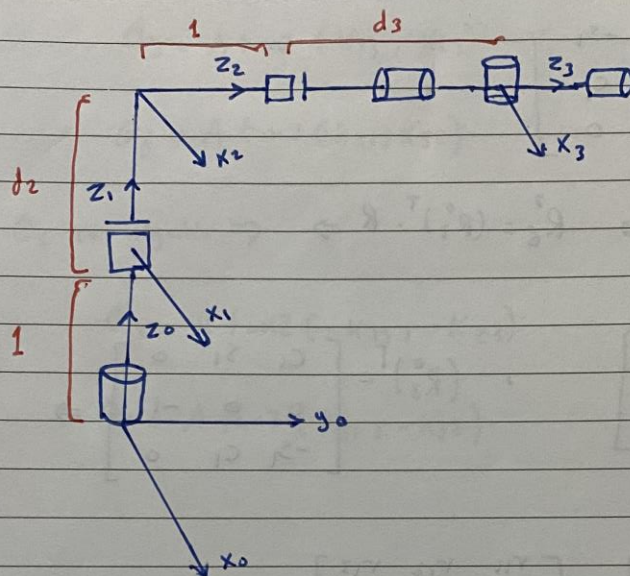 1 d3
z2 z3
x2 x3
d2
z1
x1
1 z0
y0
x0